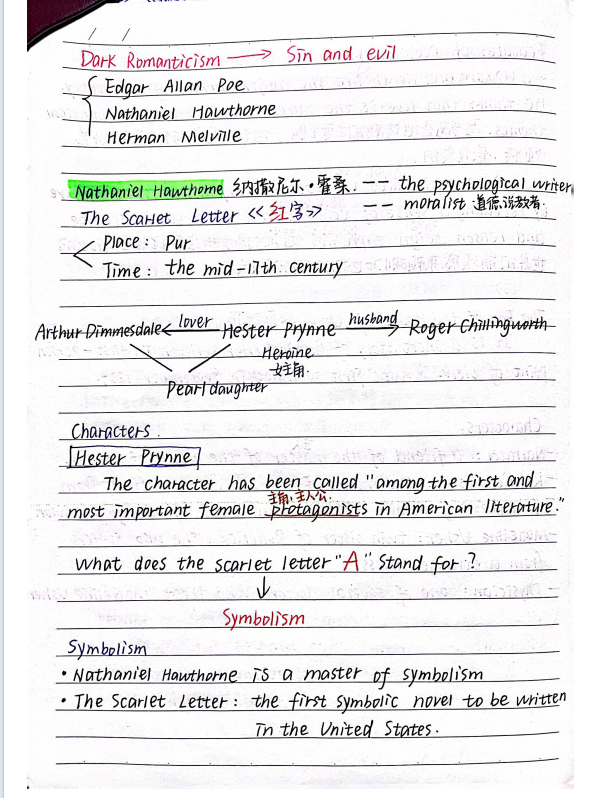 Dark Romanticism → Sin and evil
Edgar Allan Poe
Nathaniel Hawthorne
Herman Melville
Nathaniel Hawthorne 纳撒尼尔·霍桑. -- the psychological writer
The Scarlet Letter 《红字》 -- moralist 道德说教者.
Place: Pur
Time: the mid-17th century
Arthur Dimmesdale ← lover Hester Prynne husband → Roger Chillingworth
Heroine
女主角.
Pearl daughter
Characters.
Hester Prynne
The character has been called "among the first and
主角,主人公.
most important female protagonists in American literature."
What does the scarlet letter "A" Stand for?
↓
Symbolism
Symbolism
• Nathaniel Hawthorne is a master of symbolism
• The Scarlet Letter: the first symbolic novel to be written
in the United States.